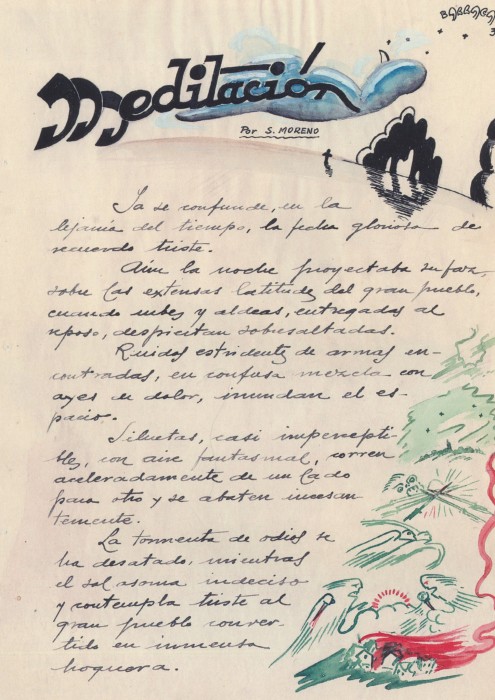 Meditación
Por S. MORENO
Ya se confunde, en la
lejanía del tiempo, la fecha gloriosa de
recuerdo triste.
Aún la noche proyectaba su faz
sobre las extensas latitudes del gran pueblo,
cuando urbes y aldeas, entregadas al
reposo, despiertan sobresaltadas.
Ruidos estridentes de armas en-
contradas, en confusa mezcla con
ayes de dolor, inundan el es-
pacio.
Siluetas, casi impercepti-
bles, con aire fantasmal, corren
aceleradamente de un lado
para otro y se abaten incesan
temente.
La tormenta de odios se
ha desatado, mientras
el sol asoma indeciso
y contempla triste al
gran pueblo conver-
tido en inmensa
hoguera.